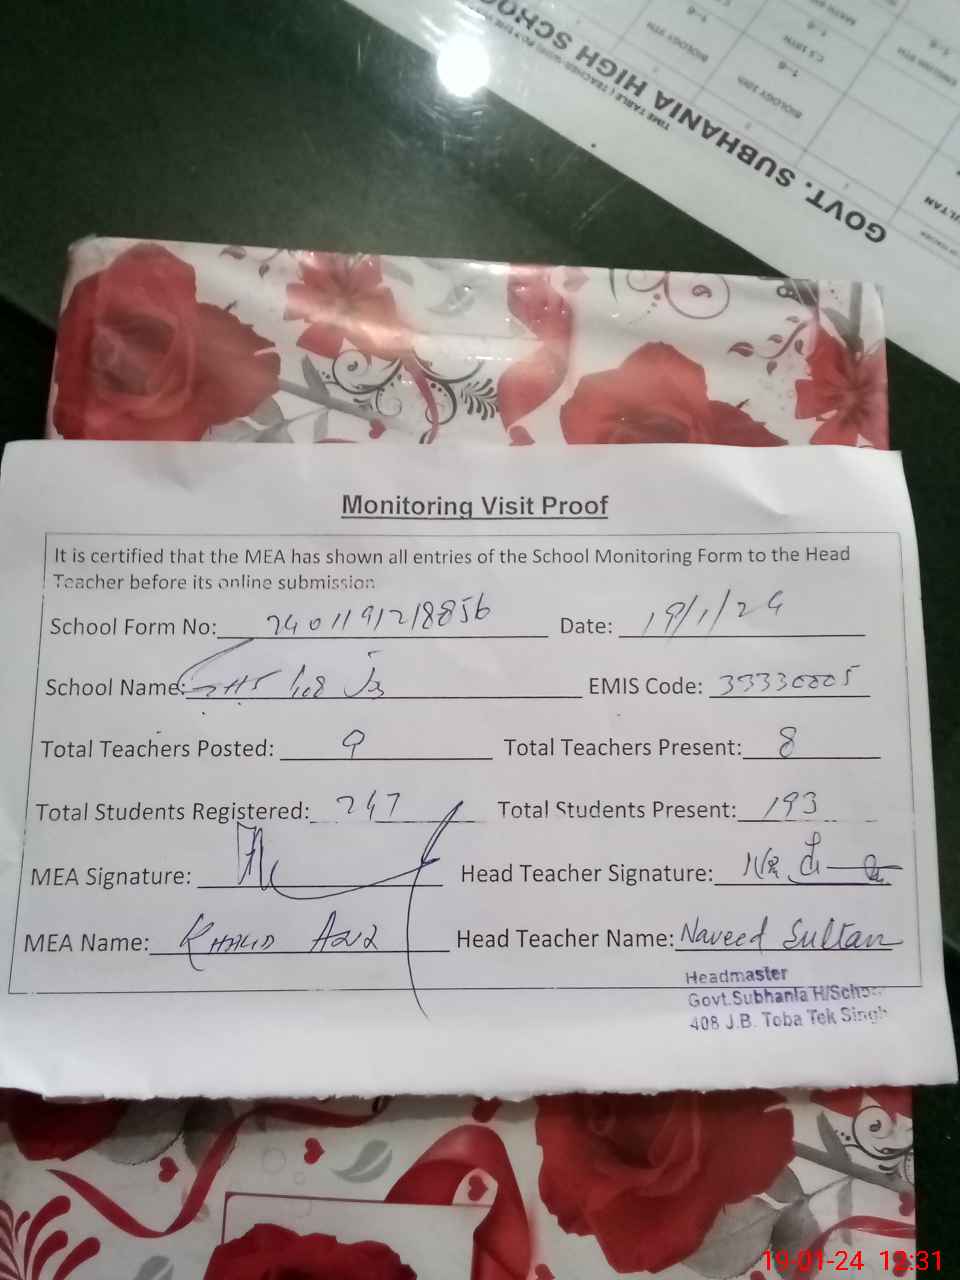 GOVT. SUBHANIA HIGH SCHOO
TIME TABLE (TEACHER WISE) FOR THE
BIOLOGY 9TH
1-6
BIOLOGY 10th
1-6
C.S 10TH
1-6
MATH
ENGLISH 9TH
1-6
Monitoring Visit Proof
It is certified that the MEA has shown all entries of the School Monitoring Form to the Head
Teacher before its online submission
School Form No: 2401191218856 Date: 19/1/24
School Name: GHS 408 JB EMIS Code: 33330005
Total Teachers Posted: 9 Total Teachers Present: 8
Total Students Registered: 247 Total Students Present: 193
MEA Signature: Head Teacher Signature:
MEA Name: KHALID Aziz Head Teacher Name: Naveed Sultan
Headmaster
Govt.Subhania H/Schoo
408 J.B. Toba Tek Singh
19-01-24 12:31